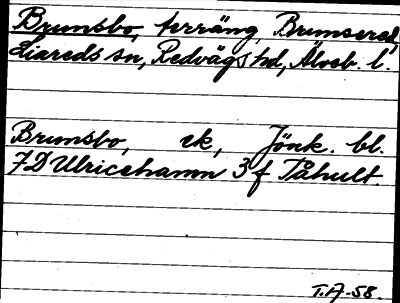 Brunsbo, terräng Brunsered,
Liareds sn, Redvägs hd, Älvsb. l.
Brunsbo, ek, Jönk. bl.
7D Ulricehamn 3 f Påhult.
T.A-58.